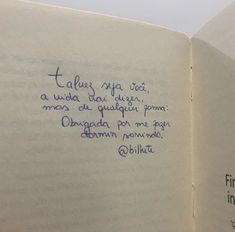 talvez seja você,
a vida vai dizer,
mas de qualquer forma:
Obrigada por me fazer
dormir sorrindo.
@bilhete
Fi
in